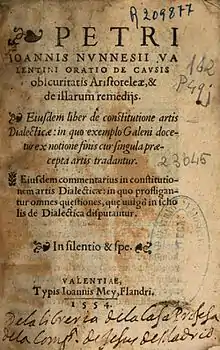 R 209877
PETRI
IOANNIS NVNNESII VA
LENTINI ORATIO DE CAVSIS
obscuritatis Aristoteleæ, &
de illarum remedijs.
Eiusdem liber de constitutione artis
Dialecticæ: in quo exemplo Galeni doce
tur ex notione finis cur singula præ
cepta artis tradantur.
23645
Eiusdem commentarius in constitutio
nem artis Dialecticæ: in quo profligan
tur omnes questiones, quę uulgò in scho
lis de Dialectica disputantur.
In silentio & spe.
VALENTIAE,
Typis Ioannis Mey, Flandri.
1554.
De la libreria de la Casa Profesa
de la Comp.ª de Jesus de Madrid